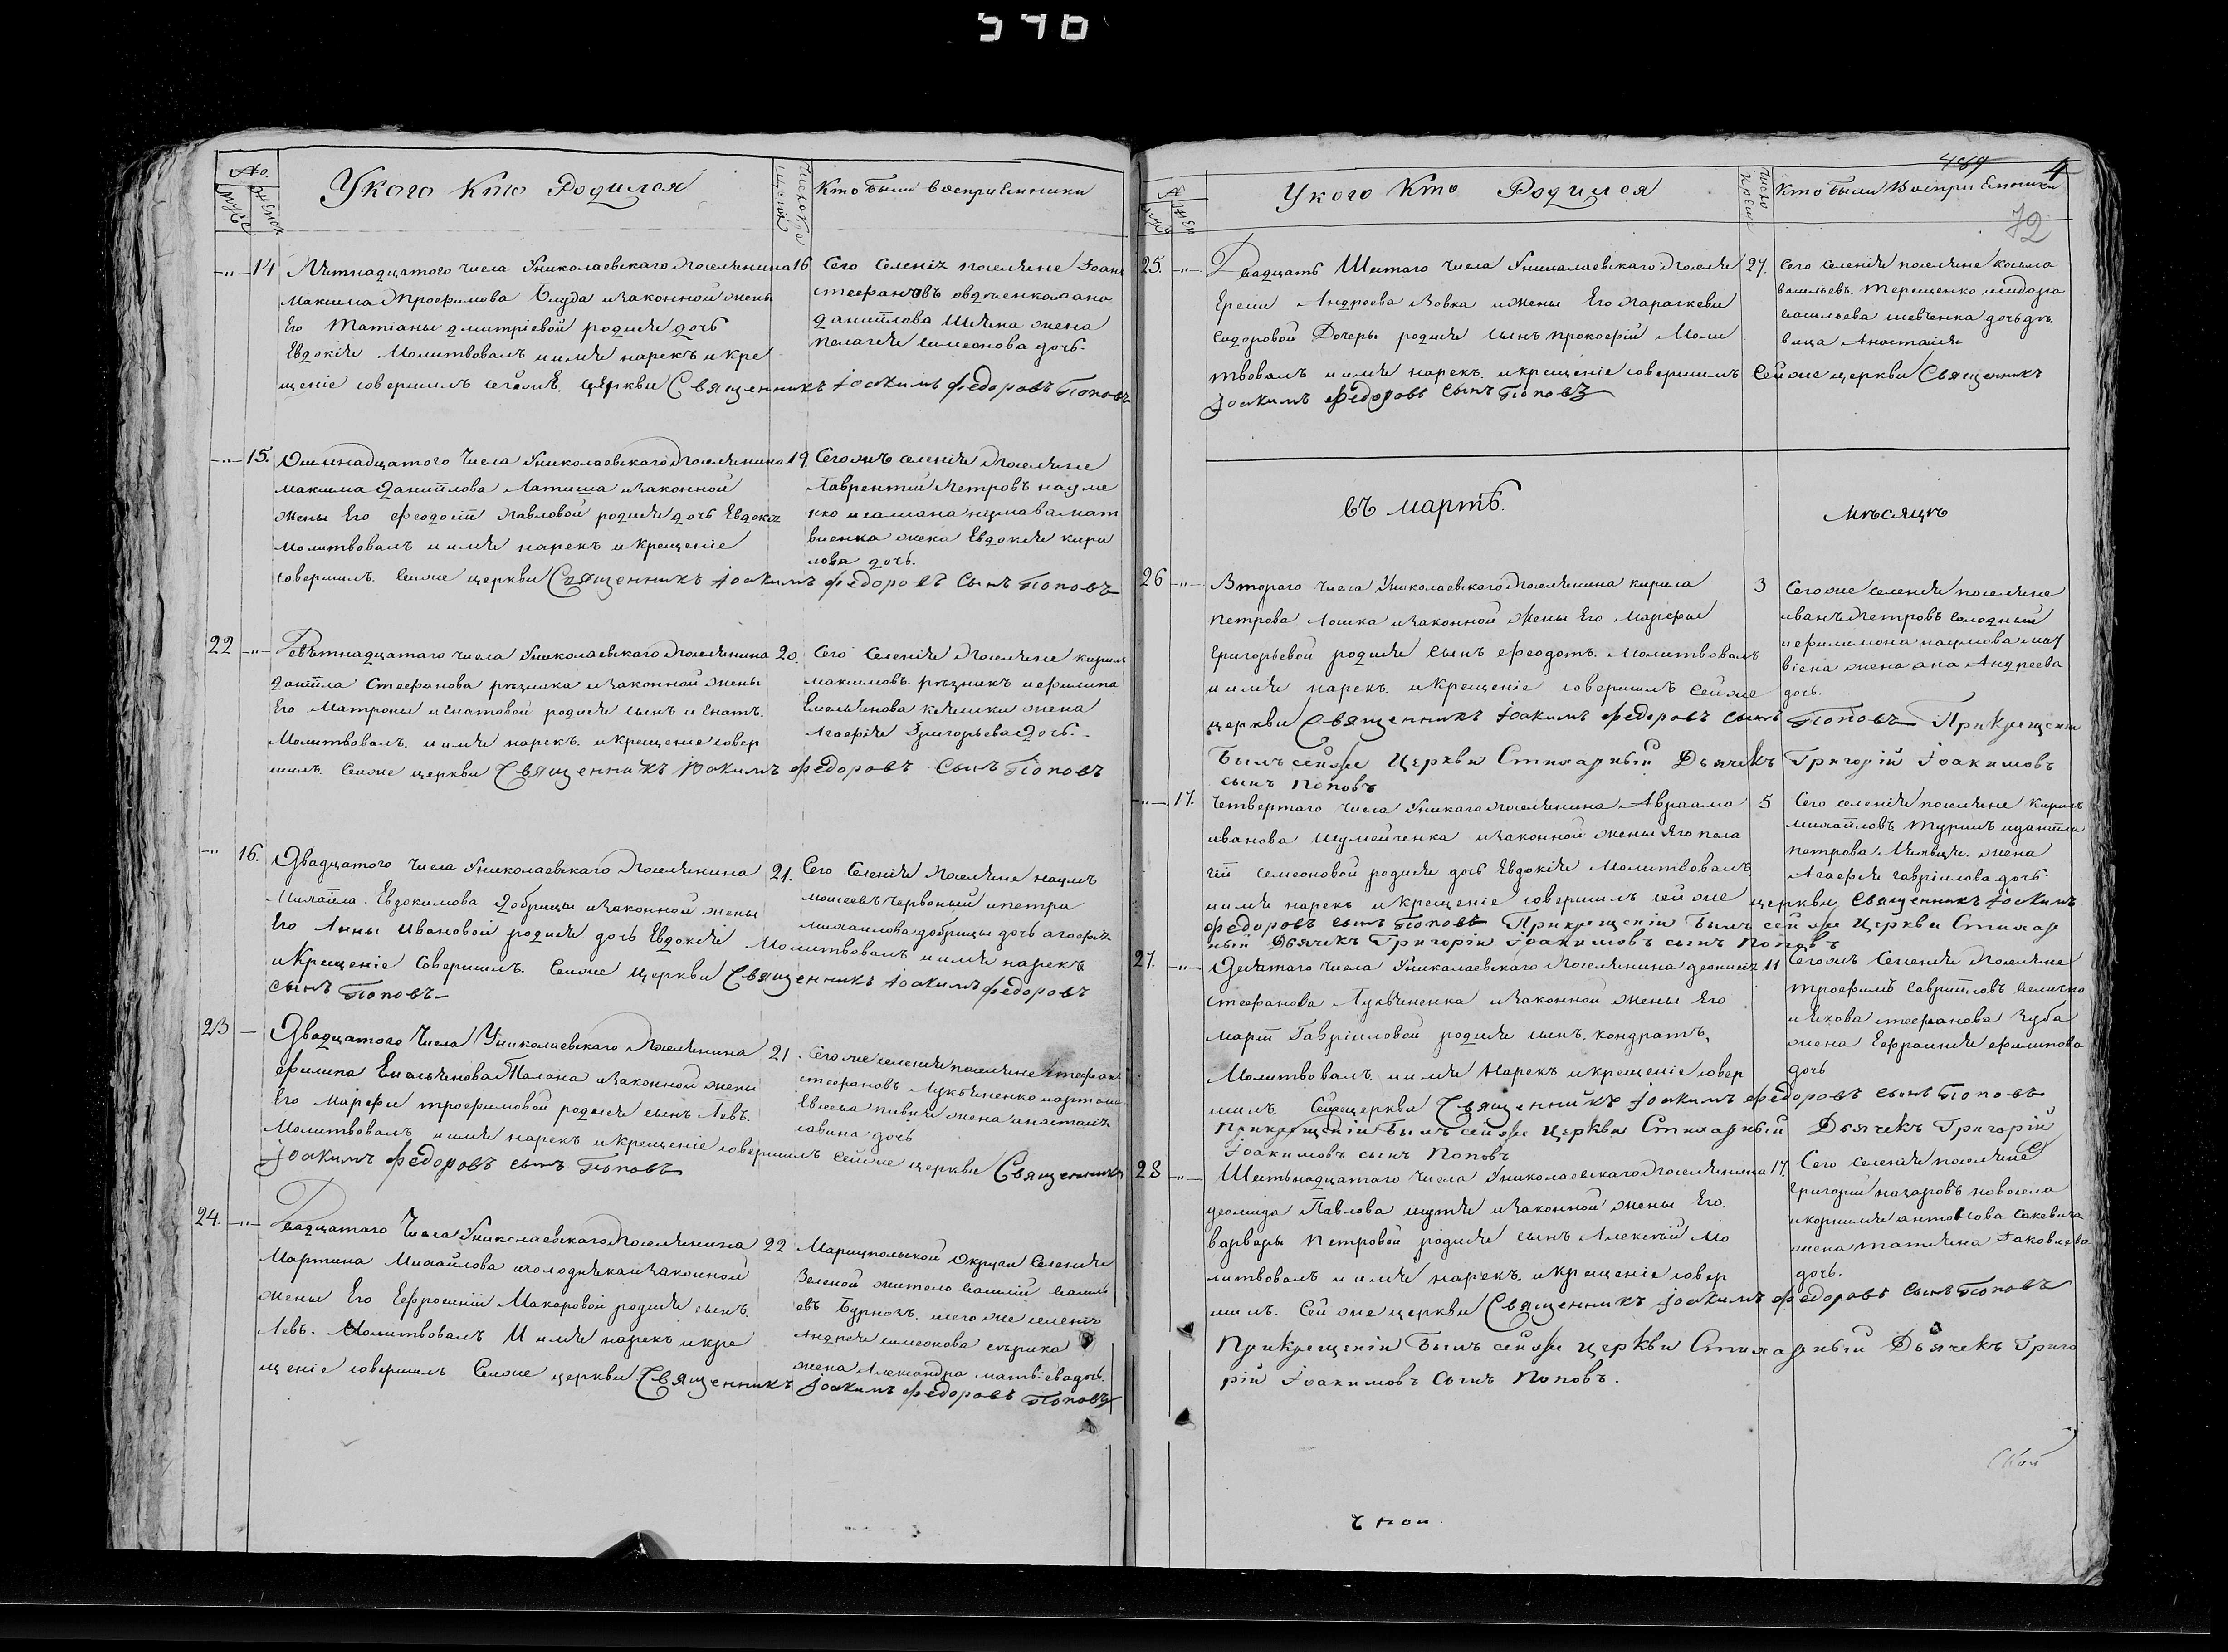 No.
мужс
женск
У кого кто Родился
Число кре
щений
Кто были восприемники
14 Пятнадцатого числа Униколаевскаго Поселянина 16
Максима Трофимова Блуда изаконной жены
Его Татіаны дмитріевой родися дочь
Евдокія Молитвовалъ и имя нарекъ и кре
щеніе совершилъ церкви Священникъ Іоакимъ федоровъ Поповъ
Сего Селенія поселяне Іоанъ
стефановъ
даніилова жена
пелагея симеонова дочь.
15. Осмнадцатого Числа Униколаевскаго Поселянина 19.
максима Даніилова Латиша изаконной
жены Его феодосіи Павловой родися дочь Евдокія
Молитвовалъ и имя нарекъ и крещеніе
совершилъ. Сейже церкви Священникъ Іоакимъ федоровъ Сынъ Поповъ
Сегожъ селенія Поселяне
Лаврентій Петровъ науме
нко наумова мат
виенка жена Евдокія кири
лова дочь.
22 Девятнадцатаго числа Униколаевскаго Поселянина 20.
даніила Стефанова резника изаконной жены
Его Матроны игнатовой родися сынъ игнатъ.
Молитвовалъ. и имя нарекъ. и крещение совер
шилъ. Сейже церкви Священникъ Іоакимъ федоровъ Сынъ Поповъ
Сего Селенія Поселяне кирилъ
максимовъ. резникъ и филипа
Емельянова жена
Агафія Григорьева Дочь.
16. Двадцатого числа Униколаевскаго Поселянина 21.
Михаила. Евдокимова Добрицы изаконной жены
Его Анны Ивановой родися дочь Евдокія Молитвовалъ и имя нарекъ
и Крещеніе Совершилъ. Сейже церкви Священникъ Іоакимъ федоровъ
сынъ Поповъ
Сего Селенія Поселяне наумъ
моисеевъ Червоный и петра
михаилова добрицы дочь агафія
23 Двадцатого Числа Униколаевскаго Поселянина 21
филипа Емельянова Талана изаконной жены
Его Марфы трофимовой родися сынъ Левъ.
Молитвовалъ и имя нарекъ и крещеніе совершилъ сейже церкви Священникъ
Іоакимъ федоровъ сынъ Поповъ
Сегоже селенія поселяне стефанъ
стефановъ Лукьяненко
жена анастасія
савина дочь
24. Двадцатаго Числа Униколаевскаго Поселянина 22
Мартина Михайлова изаконной
жены Его Ефросиніи Макаровой родися сынъ.
Левъ. Молитвовалъ И имя нарекъ и кре
щеніе совершилъ Сейже церкви Священникъ Іоакимъ федоровъ Поповъ
Мариупольской Округи Селенія
Зеленой житель василій василь
евъ исего же селенія
Андрея симеонова
жена Александра матвіева дочь.
489
4
У кого Кто Родился
Кто были Восприемники
72
25. Двадцать Шестаго числа Униколаевскаго Поселя 27.
Ереми Андреева Вовка и жены Его Параскеви
Сидоровой Дочеры родися сынъ прокофій Моли
твовалъ и имя нарекъ. и крещеніе совершилъ Сейже церкви Священникъ
Іоакимъ федоровъ Сынъ Поповъ
Сего селенія поселяне косьма
васильевъ. Терещенко исидора
васильева шевченка дочь дѣ
вица Анастасія
въ мартѣ.
мѣсяцѣ
26 Втораго числа Униколаевскаго Поселянина кирила 3
петрова Лошка изаконной жены Его Марфы
Григорьевой родися сынъ феодотъ. Молитвовалъ
и имя нарекъ. и Крещеніе совершилъ сейже
церкви Священникъ Іоакимъ федоровъ сынъ Поповъ При Крещеніи
Былъ сейже Церкви Стихарный Дьячекъ Григорій Іоакимовъ
сынъ Поповъ
Сегоже селенія поселяне
иванъ Петровъ
и филимона наумова мат
віена жена ана Андреева
дочь.
17. Четвертаго числа Поселянина Авраама 5
иванова Шумейченка изаконной жены Его пела
гіи семеоновой родися дочь Евдокія Молитвовалъ
и имя нарекъ и крещеніе совершилъ сейже церкви Священникъ Іоакимъ
федоровъ сынъ Поповъ При крещеніи Былъ сейже Церкви Стихар
ный Дьячекъ Григорій Іоакимовъ сынъ Поповъ
Сего селенія поселяне Кирилъ
михайловъ Турикъ и даніила
петрова жена
Агафія гавріилова дочь.
27. Десятаго числа Униколаевскаго Поселянина 11
стефанова Лукьяненка изаконной жены Его
маріи Гавріиловой родися сынъ. кондратъ.
Молитвовалъ. и имя Нарекъ и крещеніе совер
шилъ. Сейже церкви Священникъ Іоакимъ федоровъ сынъ Поповъ
При крещеніи Былъ сейже Церкви Стихарный Дьячекъ Григорій
Іоакимовъ сынъ Поповъ
Сегожъ Селенія Поселяне
трофимъ гавріиловъ
и Якова стефанова Зуба
жена Ефросинія филипова
дочь
28 Шестьнадцатаго числа Униколаевскаго Поселянина 17.
деомида Павлова изаконной жены Его.
варвары Петровой родися сынъ Алексѣй Мо
литвовалъ и имя нарекъ. и крещеніе совер
шилъ. Сейже церкви Священникъ Іоакимъ федоровъ Сынъ Поповъ
При крещеніи Былъ сейже Церкви Стихарный Дьячекъ Григо
рій Іоакимовъ Сынъ Поповъ.
Сего Селенія поселяне
Григорій назаровъ
и корнилія антонова
жена татіяна Іаковлева
дочь.